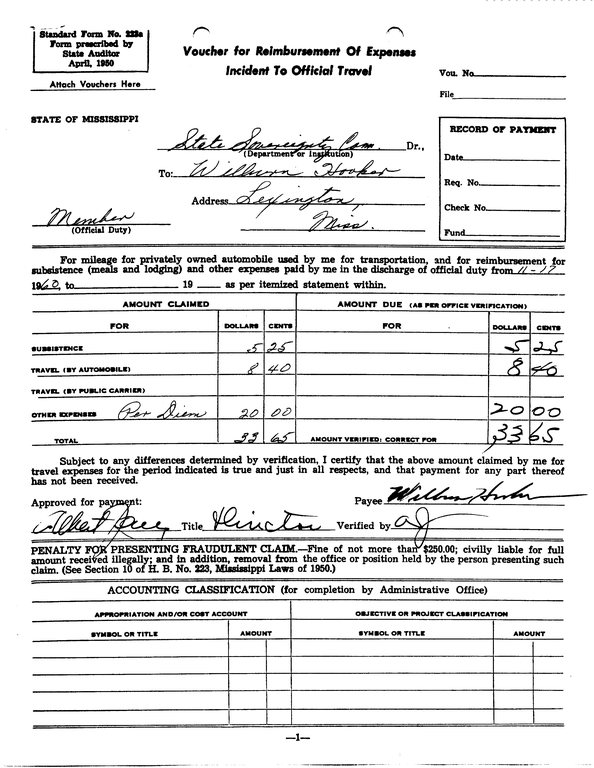 Standard Form No. 223a
Form prescribed by
State Auditor
April, 1950
Attach Vouchers Here
Voucher for Reimbursement Of Expenses
Incident To Official Travel
Vou. No.
File
STATE OF MISSISSIPPI
RECORD OF PAYMENT
Date
Req. No.
Check No.
Fund
State Sovereignty Com. Dr.,
(Department or Institution)
To: Wilburn Hooker
Address Lexington,
Miss.
Member
(Official Duty)
For mileage for privately owned automobile used by me for transportation, and for reimbursement for
subsistence (meals and lodging) and other expenses paid by me in the discharge of official duty from 11-17
1960, to 19 as per itemized statement within.
AMOUNT CLAIMED AMOUNT DUE (AS PER OFFICE VERIFICATION)
FOR DOLLARS CENTS FOR DOLLARS CENTS
SUBSISTENCE 5 25 5 25
TRAVEL (BY AUTOMOBILE) 8 40 8 40
TRAVEL (BY PUBLIC CARRIER)
OTHER EXPENSES Per Diem 20 00 20 00
TOTAL 33 65 AMOUNT VERIFIED: CORRECT FOR 33 65
Subject to any differences determined by verification, I certify that the above amount claimed by me for
travel expenses for the period indicated is true and just in all respects, and that payment for any part thereof
has not been received.
Approved for payment: Payee Wilburn Hooker
Albert Title Director Verified by
PENALTY FOR PRESENTING FRAUDULENT CLAIM.—Fine of not more than $250.00; civilly liable for full
amount received illegally; and in addition, removal from the office or position held by the person presenting such
claim. (See Section 10 of H. B. No. 223, Mississippi Laws of 1950.)
ACCOUNTING CLASSIFICATION (for completion by Administrative Office)
APPROPRIATION AND/OR COST ACCOUNT OBJECTIVE OR PROJECT CLASSIFICATION
SYMBOL OR TITLE AMOUNT SYMBOL OR TITLE AMOUNT
—1—